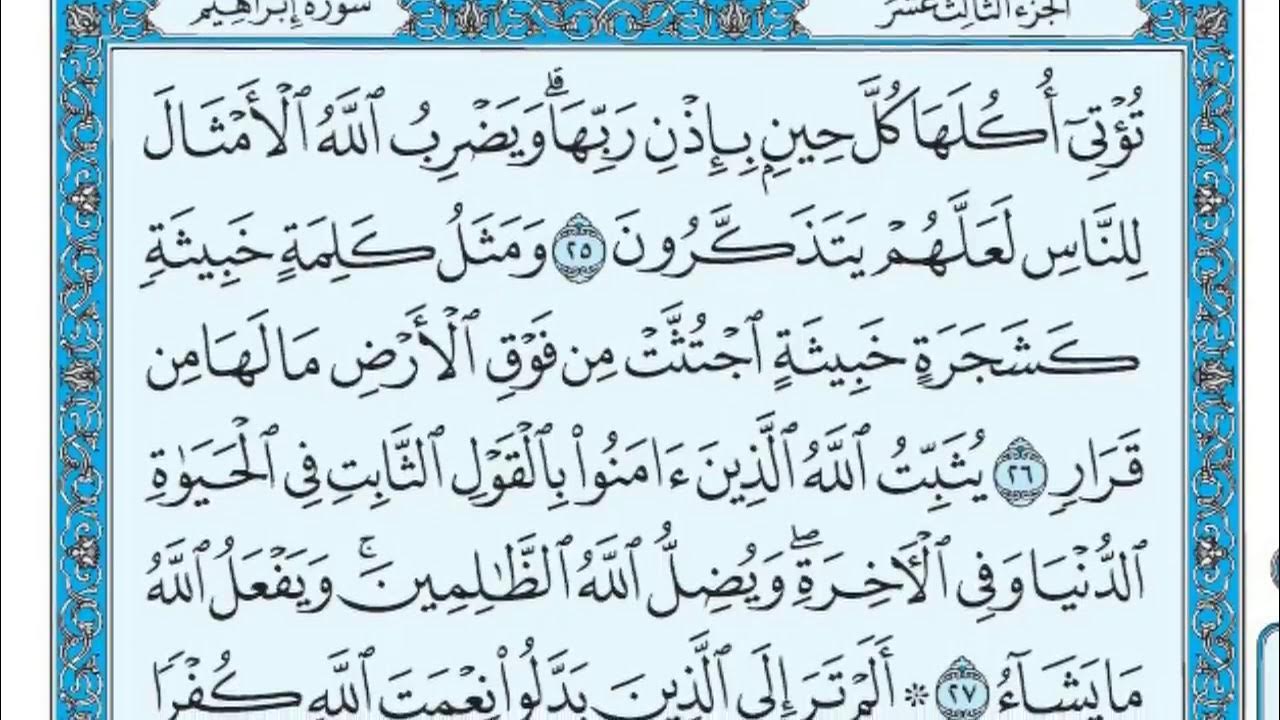 سورة إبراهيم
الجزء الثالث عشر
تُؤْتِىٓ أُكُلَهَا كُلَّ حِينٍۭ بِإِذْنِ رَبِّهَاۗ وَيَضْرِبُ ٱللَّهُ ٱلْأَمْثَالَ
لِلنَّاسِ لَعَلَّهُمْ يَتَذَكَّرُونَ ٢٥ وَمَثَلُ كَلِمَةٍ خَبِيثَةٍ
كَشَجَرَةٍ خَبِيثَةٍ ٱجْتُثَّتْ مِن فَوْقِ ٱلْأَرْضِ مَا لَهَا مِن
قَرَارٍ ٢٦ يُثَبِّتُ ٱللَّهُ ٱلَّذِينَ ءَامَنُوا۟ بِٱلْقَوْلِ ٱلثَّابِتِ فِى ٱلْحَيَوٰةِ
ٱلدُّنْيَا وَفِى ٱلْءَاخِرَةِۖ وَيُضِلُّ ٱللَّهُ ٱلظَّٰلِمِينَۚ وَيَفْعَلُ ٱللَّهُ
مَا يَشَآءُ ٢٧ ۞ أَلَمْ تَرَ إِلَى ٱلَّذِينَ بَدَّلُوا۟ نِعْمَتَ ٱللَّهِ كُفْرًا